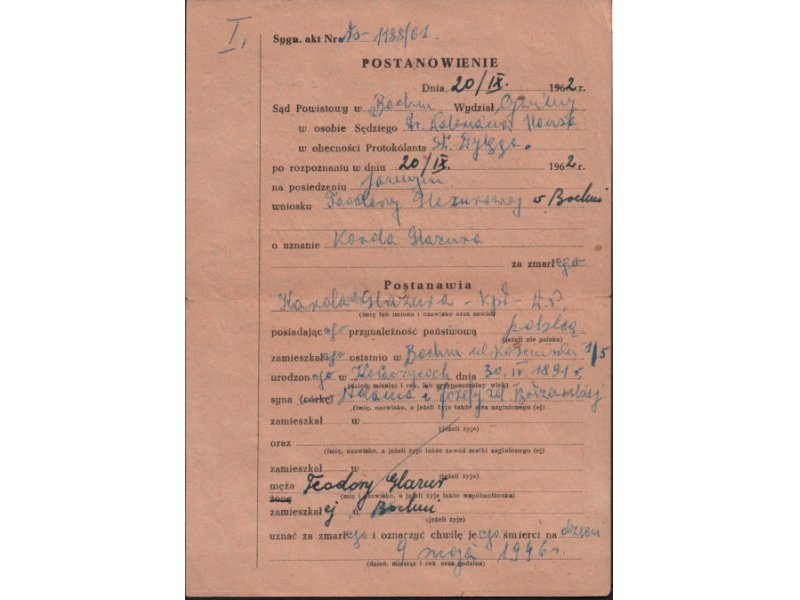 I,
Sygn. akt Nr Ns- 1188/61
POSTANOWIENIE
Dnia 20/IX. 1962 r.
Sąd Powiatowy w Bochni Wydział Cywilny
w osobie Sędziego Dr.
w obecności Protokólanta St.
po rozpoznaniu w dniu 20/IX. 1962 r.
na posiedzeniu jawnym
wniosku Teodory Glazurowej w Bochni
o uznanie Karola Glazura
za zmarłego
Postanawia
Karola Glazura - kpt. W.P.
(imię lub imiona i nazwisko oraz zawód)
posiadającego przynależność państwową polską
(jeżeli nie polska)
zamieszkałego ostatnio w Bochni ul. 1/5
urodzonego w Kołaczycach dnia 30. IV. 1891 r.
(dzień miesiąc i rok, lub przypuszczalny wiek)
syna (córkę) Adama i Józefy zd.
(imię, nazwisko, a jeżeli żyje także ojca zaginionego (ej)
zamieszkał w
(jeżeli żyje)
oraz
(imię, nazwisko, a jeżeli żyje także zawód matki zaginionego (ej)
zamieszkał w
(jeżeli żyje)
męża Teodory Glazur
żonę (imię i nazwisko, a jeżeli żyje także współmałżonka)
zamieszkałej w Bochni
(jeżeli żyje)
uznać za zmarłego i oznaczyć chwilę jego śmierci na dzień
9 maja 1946 r.
(dzień, miesiąc i rok oraz godzina)